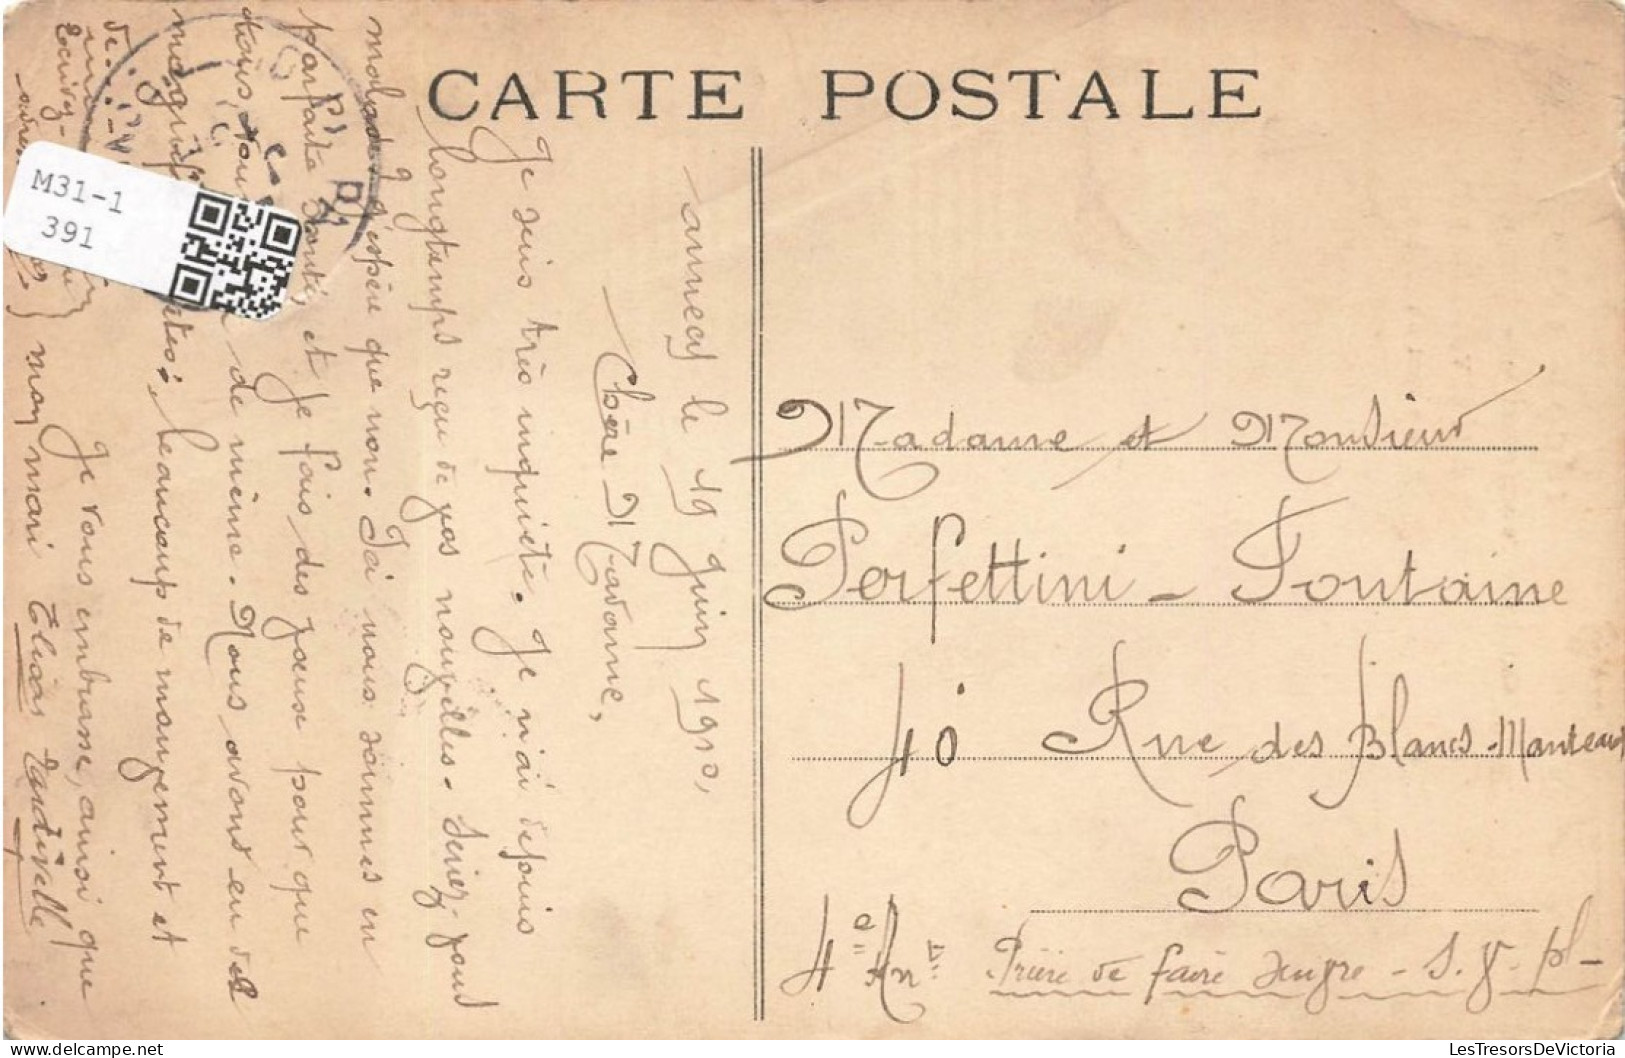 CARTE POSTALE
Annecy le 19 Juin 1910,
Chère Madame,
Je suis très inquiète. Je n'ai depuis
longtemps reçu de vos nouvelles. Seriez-vous
malades, j'espère que non. J'ai nous sommes en
parfaite santé, et je fais des vœux pour que
de même. Nous avons eu des
beaucoup de mangement et
de
Je vous embrasse, ainsi que
Ecrivez-
mon mari Elias Lardivelle.
Madame et Monsieur
Perfettini - Fontaine
40 Rue des Blancs-Manteaux
Paris
4e Arrt
Prière de faire suivre - S. V. pl-
M31-1
391
LesTresorsDeVictoria